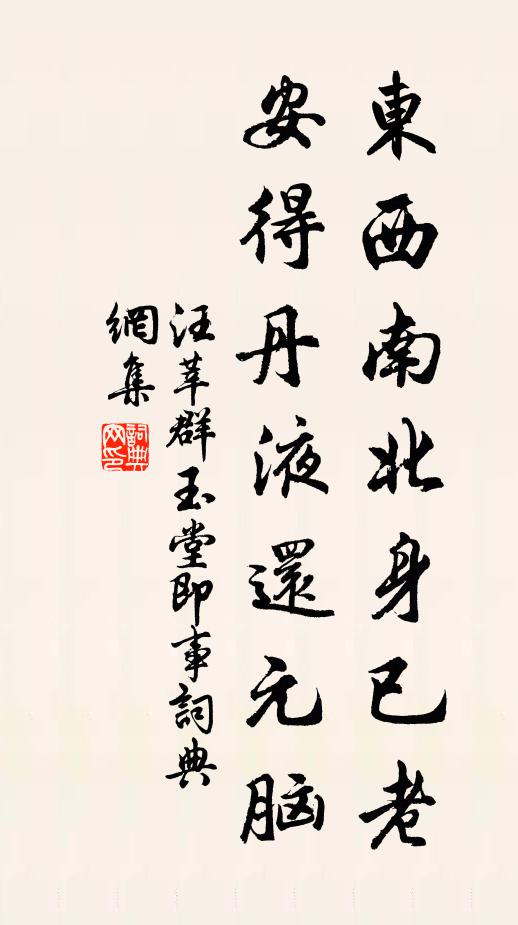 東西南北身已老
安得丹液還元脑
汪莘群玉堂即事詞典
網集
詞典網印